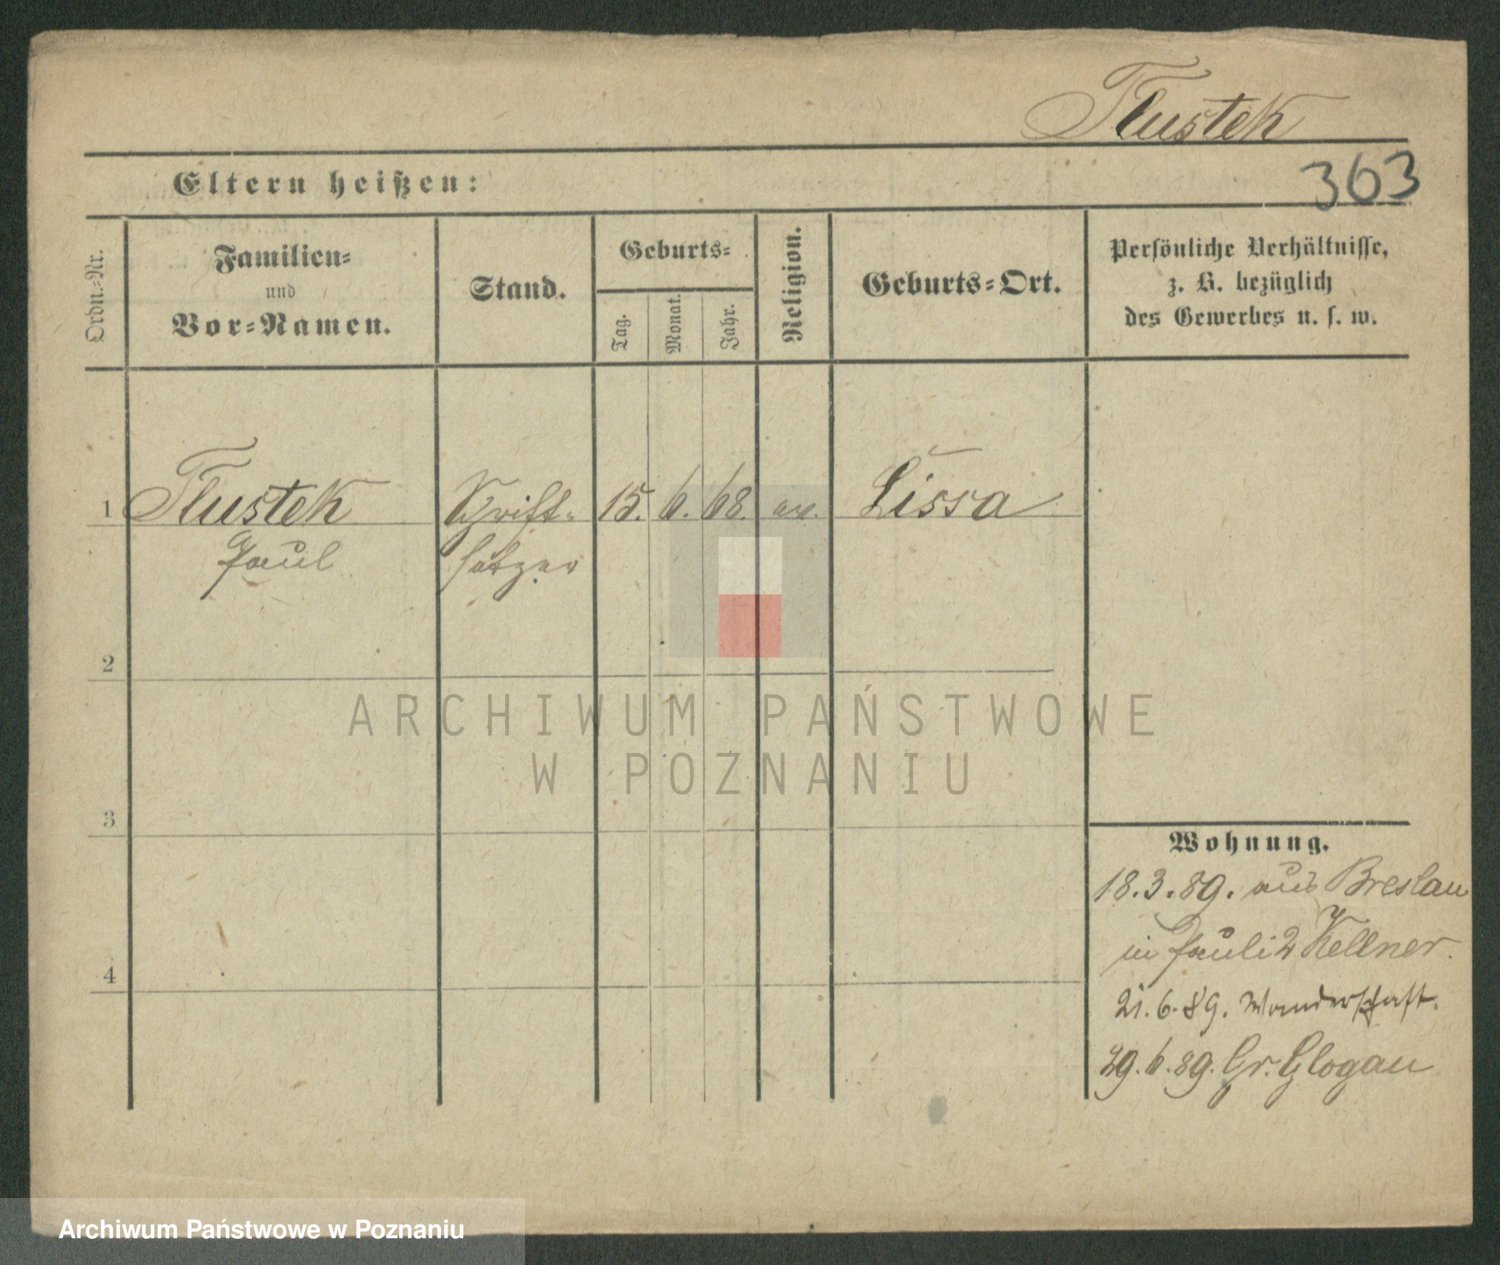 Tlustek
363
Eltern heißen:
Ordn.-Nr.
Familien-
und
Vor-Namen.
Stand.
Geburts-
Tag.
Monat.
Jahr.
Religion.
Geburts-Ort.
Persönliche Verhältnisse,
z. B. bezüglich
des Gewerbes u. s. w.
1 Tlustek Schrift- 15. 6. 68. Lissa
Paul setzer
2
3
4
ARCHIWUM PAŃSTWOWE
W POZNANIU
Wohnung.
18.3.89. aus Breslau
in Pauli 2 Kellner.
21.6.89. Wanderschaft.
29.6.89. Gr. Glogau
Archiwum Państwowe w Poznaniu